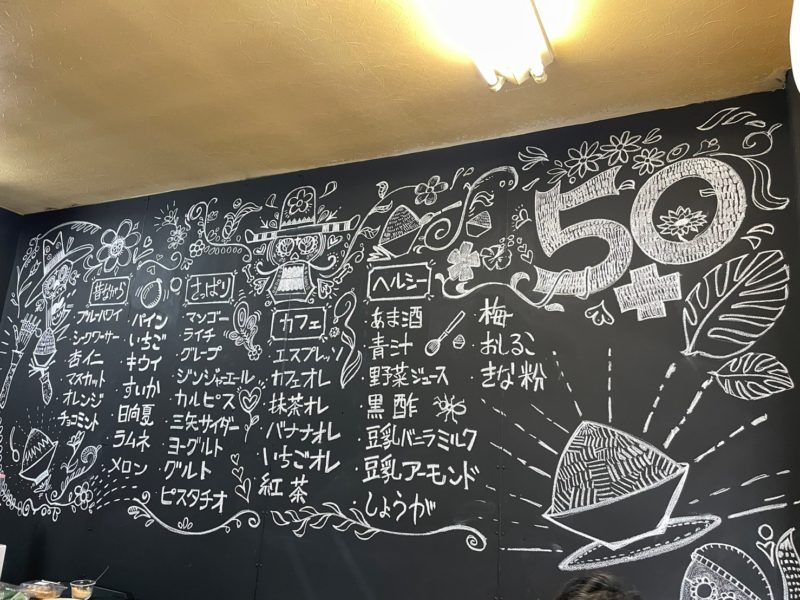 昔ながら
ブルーハワイ
シークワーサー
杏仁
マスカット
オレンジ
チョコミント
パイン
いちご
キウイ
すいか
日向夏
ラムネ
メロン
さっぱり
マンゴー
ライチ
グレープ
ジンジャーエール
カルピス
三矢サイダー
ヨーグルト
グルト
ピスタチオ
カフェ
エスプレッソ
カフェオレ
抹茶オレ
バナナオレ
いちごオレ
紅茶
ヘルシー
・あま酒
・青汁
・野菜ジュース
・黒酢
・豆乳バニラミルク
・豆乳アーモンド
・しょうが
・梅
・おしるこ
・きな粉
50
+